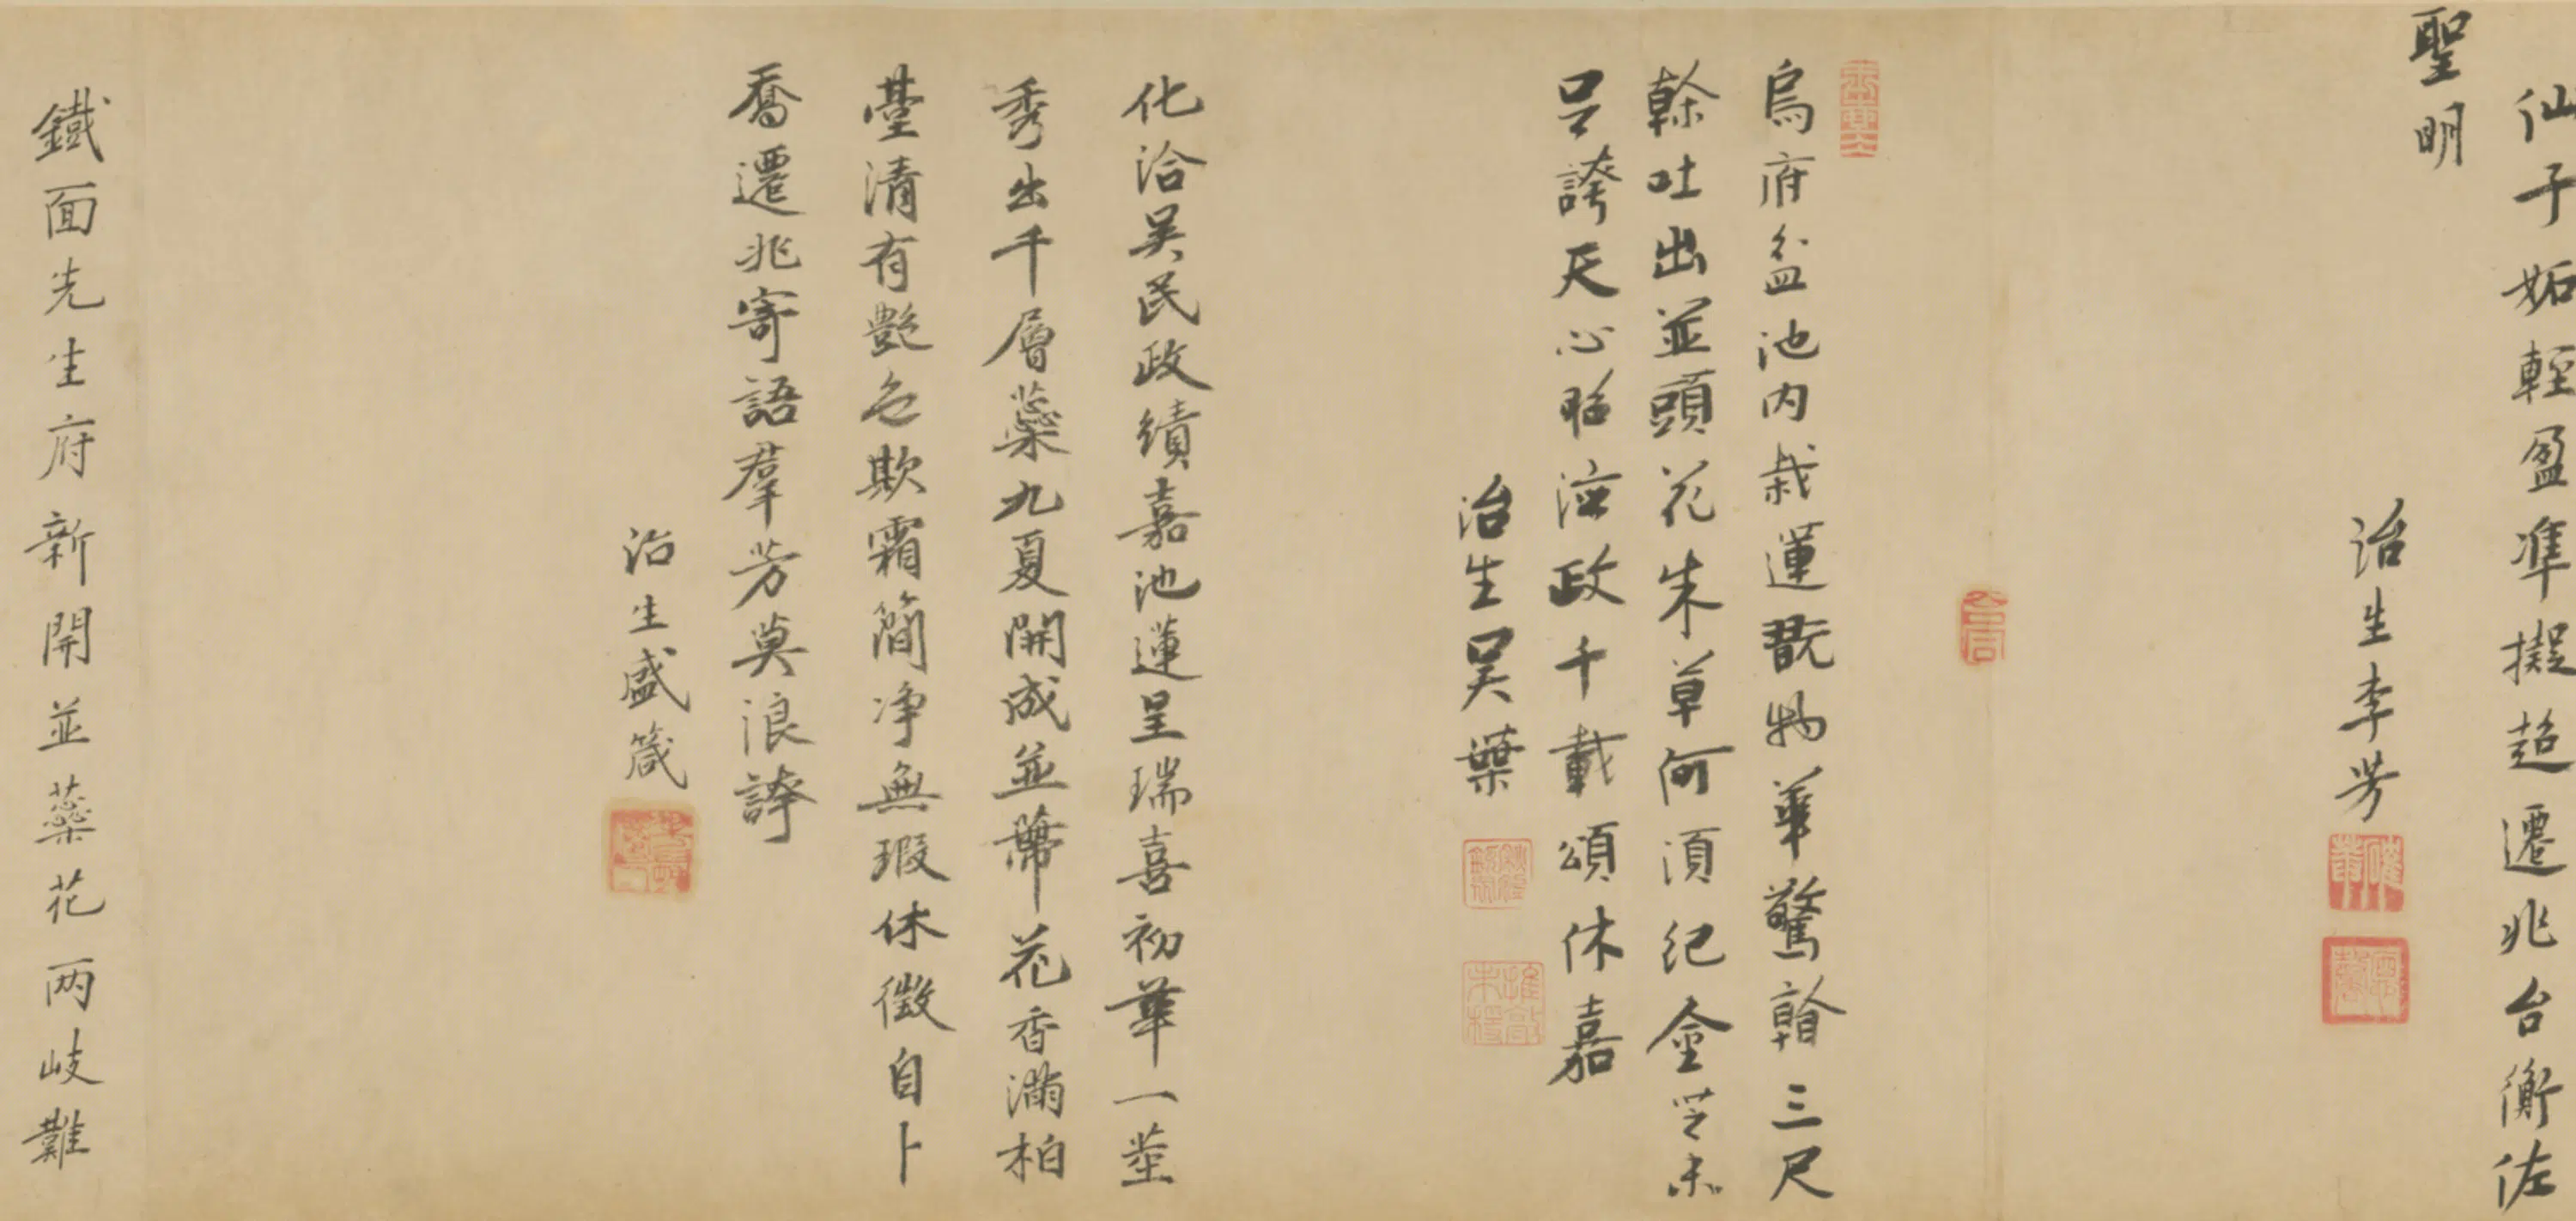 仙子妬輕盈準擬超遷兆台衡佐
聖明
治生李芳
烏府盆池内栽蓮翫物華驚看三尺
榦吐出並頭花朱草何須紀金芝未
足誇天心昭治政千載頌休嘉
治生吴葉
化洽吴民政績嘉池蓮呈瑞喜初華一莖
秀出千層蘂九夏開成並蔕花香滿柏
臺清有艷色欺霜簡净無瑕休徵自卜
喬遷兆寄語羣芳莫浪誇
治生盛箴
鐵面先生府新開並蘂花两岐難